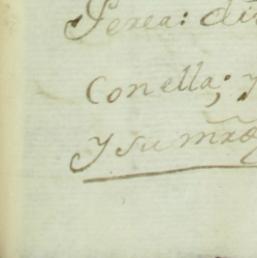 Perea: di
Con ella; y
Y su mrõ